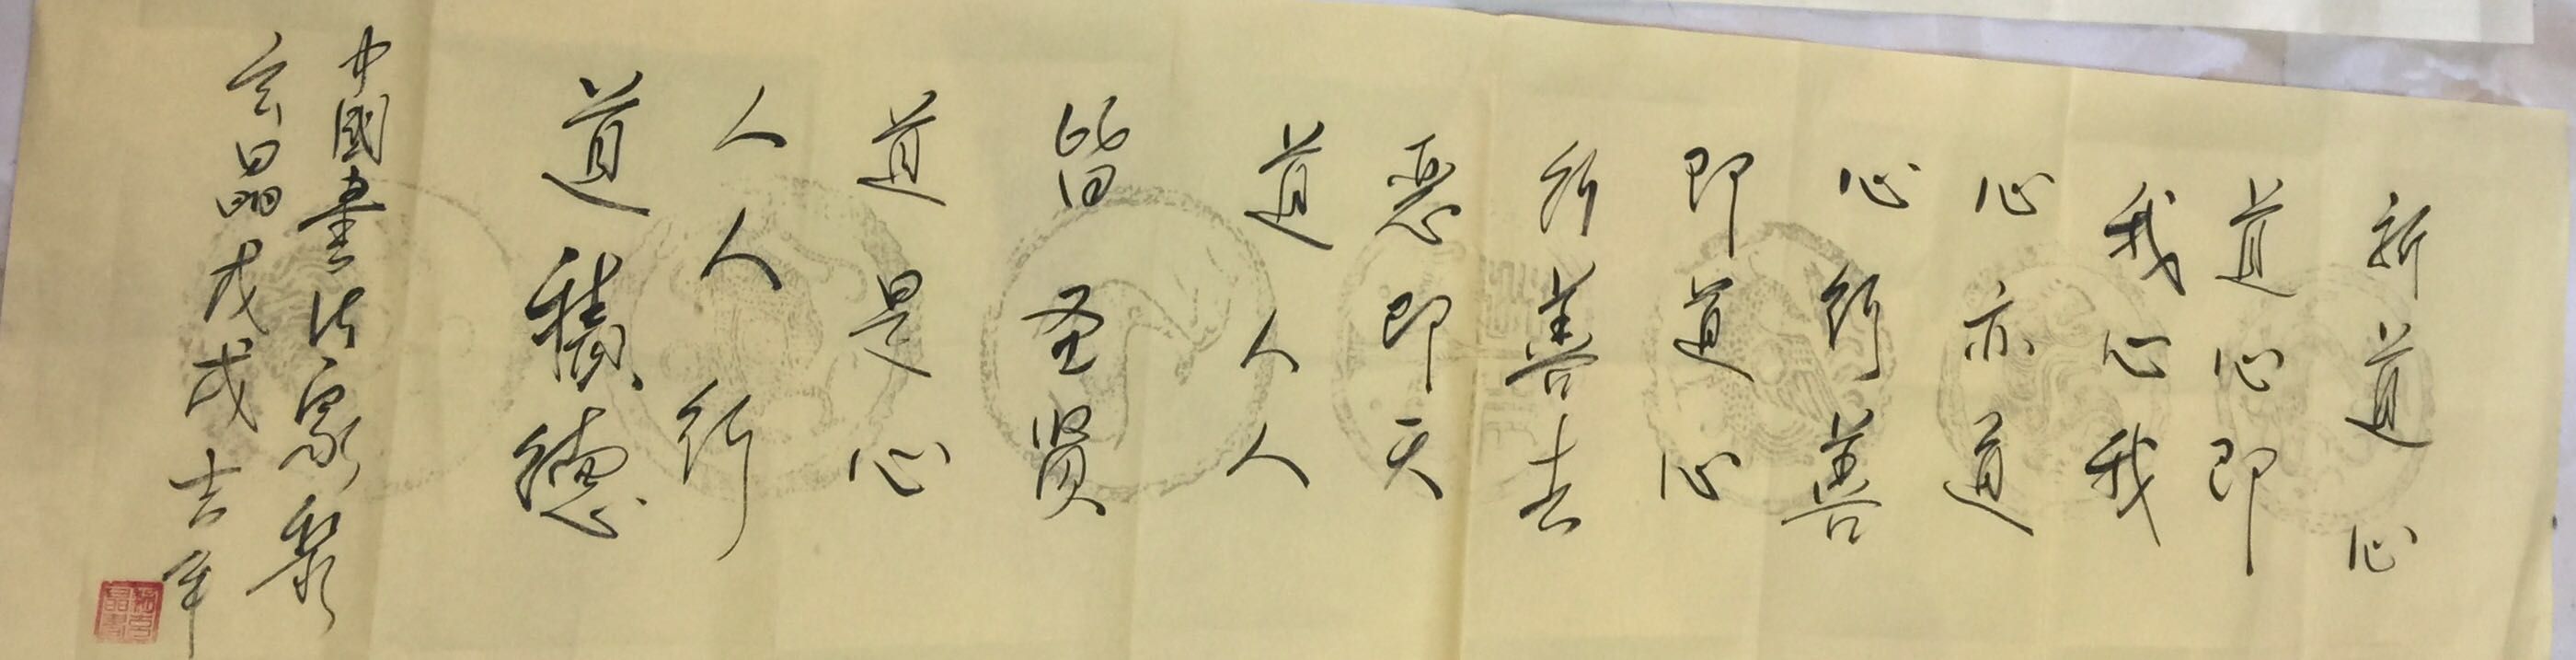 新道心
道心即
我心我
心亦道
心行善
即道心
行善去
恶即天
道人人
皆圣贤
道是心
人人行
道積德
中國書法家黎
玄晶戊戌吉年